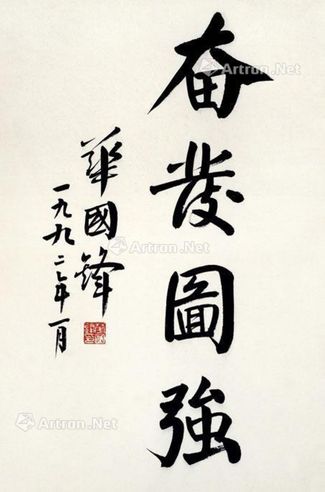 奮發圖強
華國鋒
一九九二年一月
Artron.Net
Artron.Net
Artron.Net